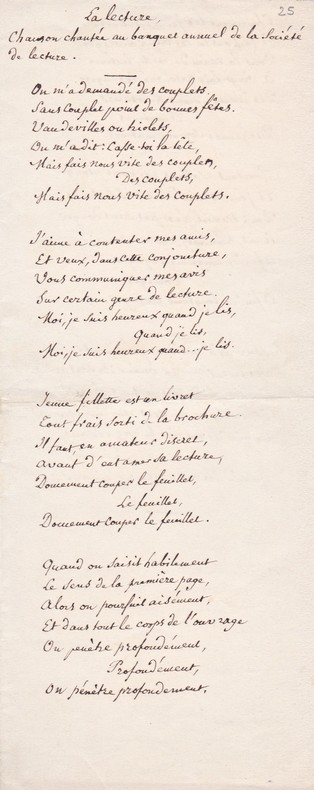 25
La lecture,
Chanson chantée au banquet annuel de la Société
de lecture.
On m'a demandé des couplets.
Sans couplet point de bonnes fêtes.
Vaudevilles ou triolets,
On m'a dit: Casse-toi la tête,
Mais fais nous vite des couplets,
Des couplets,
Mais fais nous vite des couplets.
J'aime à contenter mes amis,
Et veux, dans cette conjoncture,
Vous communiquer mes avis
Sur certain genre de lecture.
Moi, je suis heureux quand je lis,
Quand je lis,
Moi, je suis heureux quand... je lis.
Jeune fillette est un livret
Tout frais sorti de la brochure.
Il faut, en amateur discret,
Avant d'entamer sa lecture,
Doucement couper le feuillet,
Le feuillet,
Doucement couper le feuillet.
Quand on saisit habilement
Le sens de la première page,
Alors on poursuit aisément,
Et dans tout le corps de l'ouvrage
On penètre profondément,
Profondément,
On pénètre profondement.